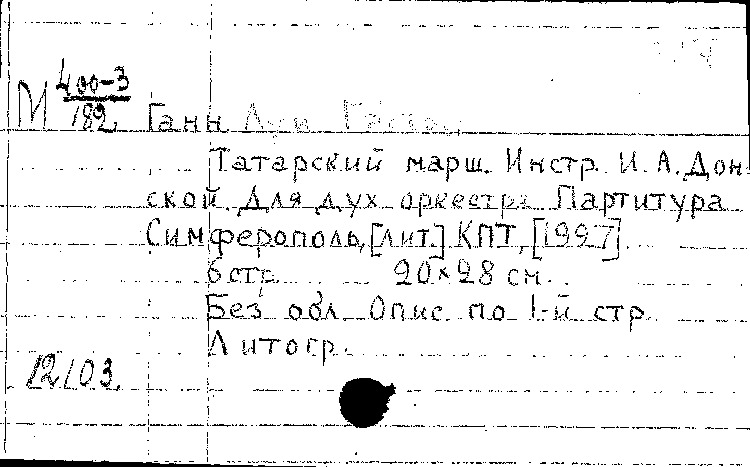 М 400-3/182 Ганн Луи Гастон
Татарский марш. Инстр. И. А. Дон-
ской. Для дух оркестра Партитура
Симферополь, [лит.] КПТ, [1927].
6 стр. 20×28 см.
Без обл. Опис. по 1-й стр.
Литогр.
12/03.